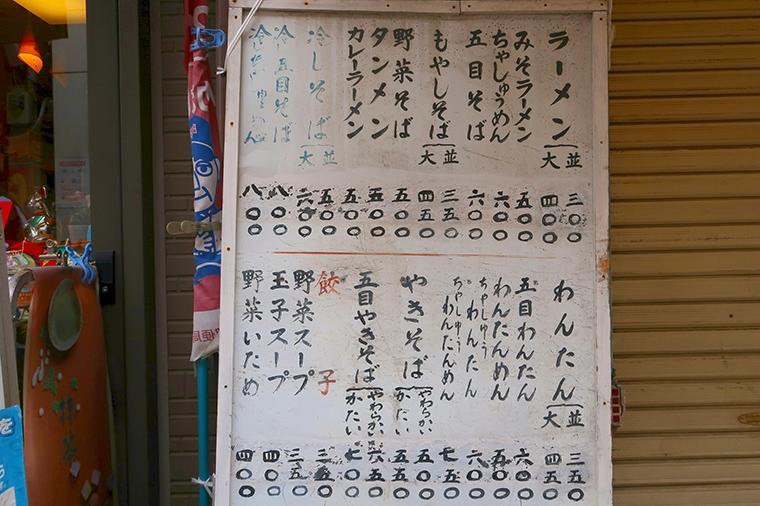 ラーメン 並 三〇〇
大 四〇〇
みそラーメン 五〇〇
ちゃしゅうめん 六〇〇
五目そば 六〇〇
もやしそば 並 三五〇
大 四五〇
野菜そば 五〇〇
タンメン 五〇〇
カレーラーメン 五〇〇
冷しそば 並 五〇〇
大 六〇〇
冷し五目そば 八〇〇
冷しちゃしゅうめん 八〇〇
わんたん 並 三五〇
大 四五〇
五目わんたん 六〇〇
わんたんめん 五〇〇
ちゃしゅうわんたん 六〇〇
ちゃしゅうわんたんめん 七五〇
やきそば やわらかい 五〇〇
かたい 五五〇
五目やきそば やわらかい 六五〇
かたい 七〇〇
餃子 三五〇
野菜スープ 三五〇
玉子スープ 四〇〇
野菜いため 四〇〇